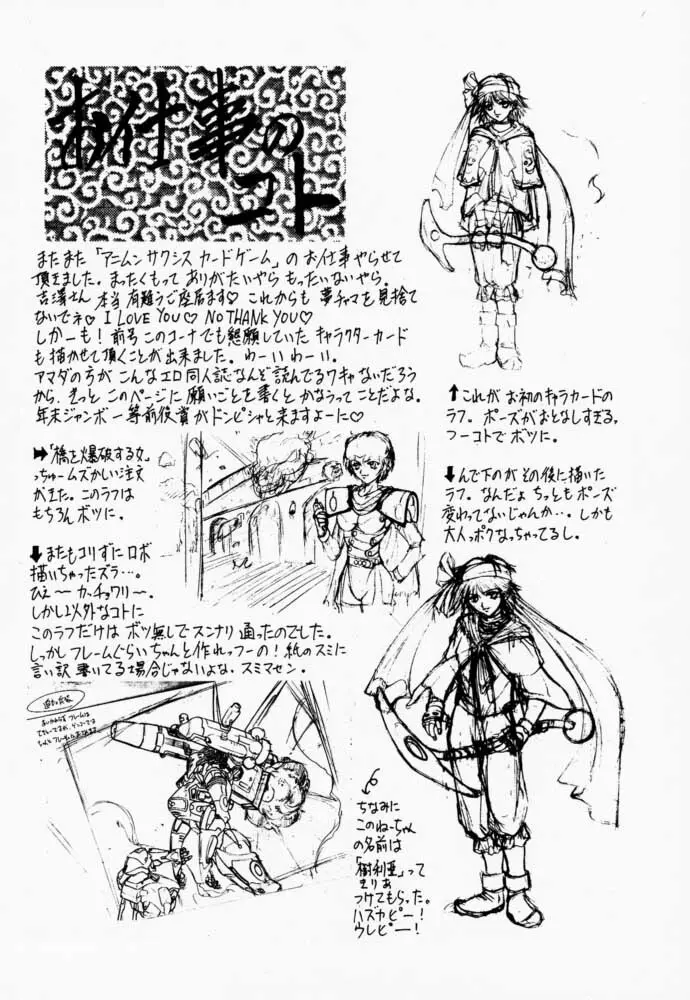 お仕事の
コト
またまた「アニムン サクシス カードゲーム」の お仕事 やらせて
頂きました。まったくもって ありがたいやら もったいないやら。
吉澤さん 本当 有難うご座居ます♡ これからも 夢チャマを 見捨て
ないでネ♡ I LOVE YOU♡ NO THANK YOU♡
しかーも! 前号 このコーナでも 懇願していた キャラクターカード
も 描かせて頂くことが 出来ました。わーい わーい。
アマダの方が こんな エロ同人誌なんぞ 読んでるワキャ ないだろう
から、きっと このページに 願いごとを 書くと かなうって ことだよな。
年末ジャンボ 一等前後賞が ドンピシャと 来ますよーに♡
➡「橋を爆破する女」
っちゅームズかしい注文
がきた。このラフは
もちろん ボツに。
⬇またもコリずに ロボ
描いちゃったズラ…。
ひえ〜 カッチョワリ〜。
しかし 以外なコトに
このラフだけは ボツ無しで スンナリ 通ったのでした。
しっかし フレームぐらい ちゃんと 作れっつーの! 紙のスミに
言い訳 書いてる場合じゃないよな。スミマセン。
⬆これが お初のキャラカードの
ラフ。ポーズが おとなしすぎる。
つーコトで ボツに。
⬇んで下のが その後に 描いた
ラフ。なんだょ ちっとも ポーズ
変わってないじゃんか…。しかも
大人っポクなっちゃってるし。
ちなみに
このねーちゃん
の名前は
「樹利亜」って
きりあ
つけてもらった。
ハズカピー!
ウレピー!